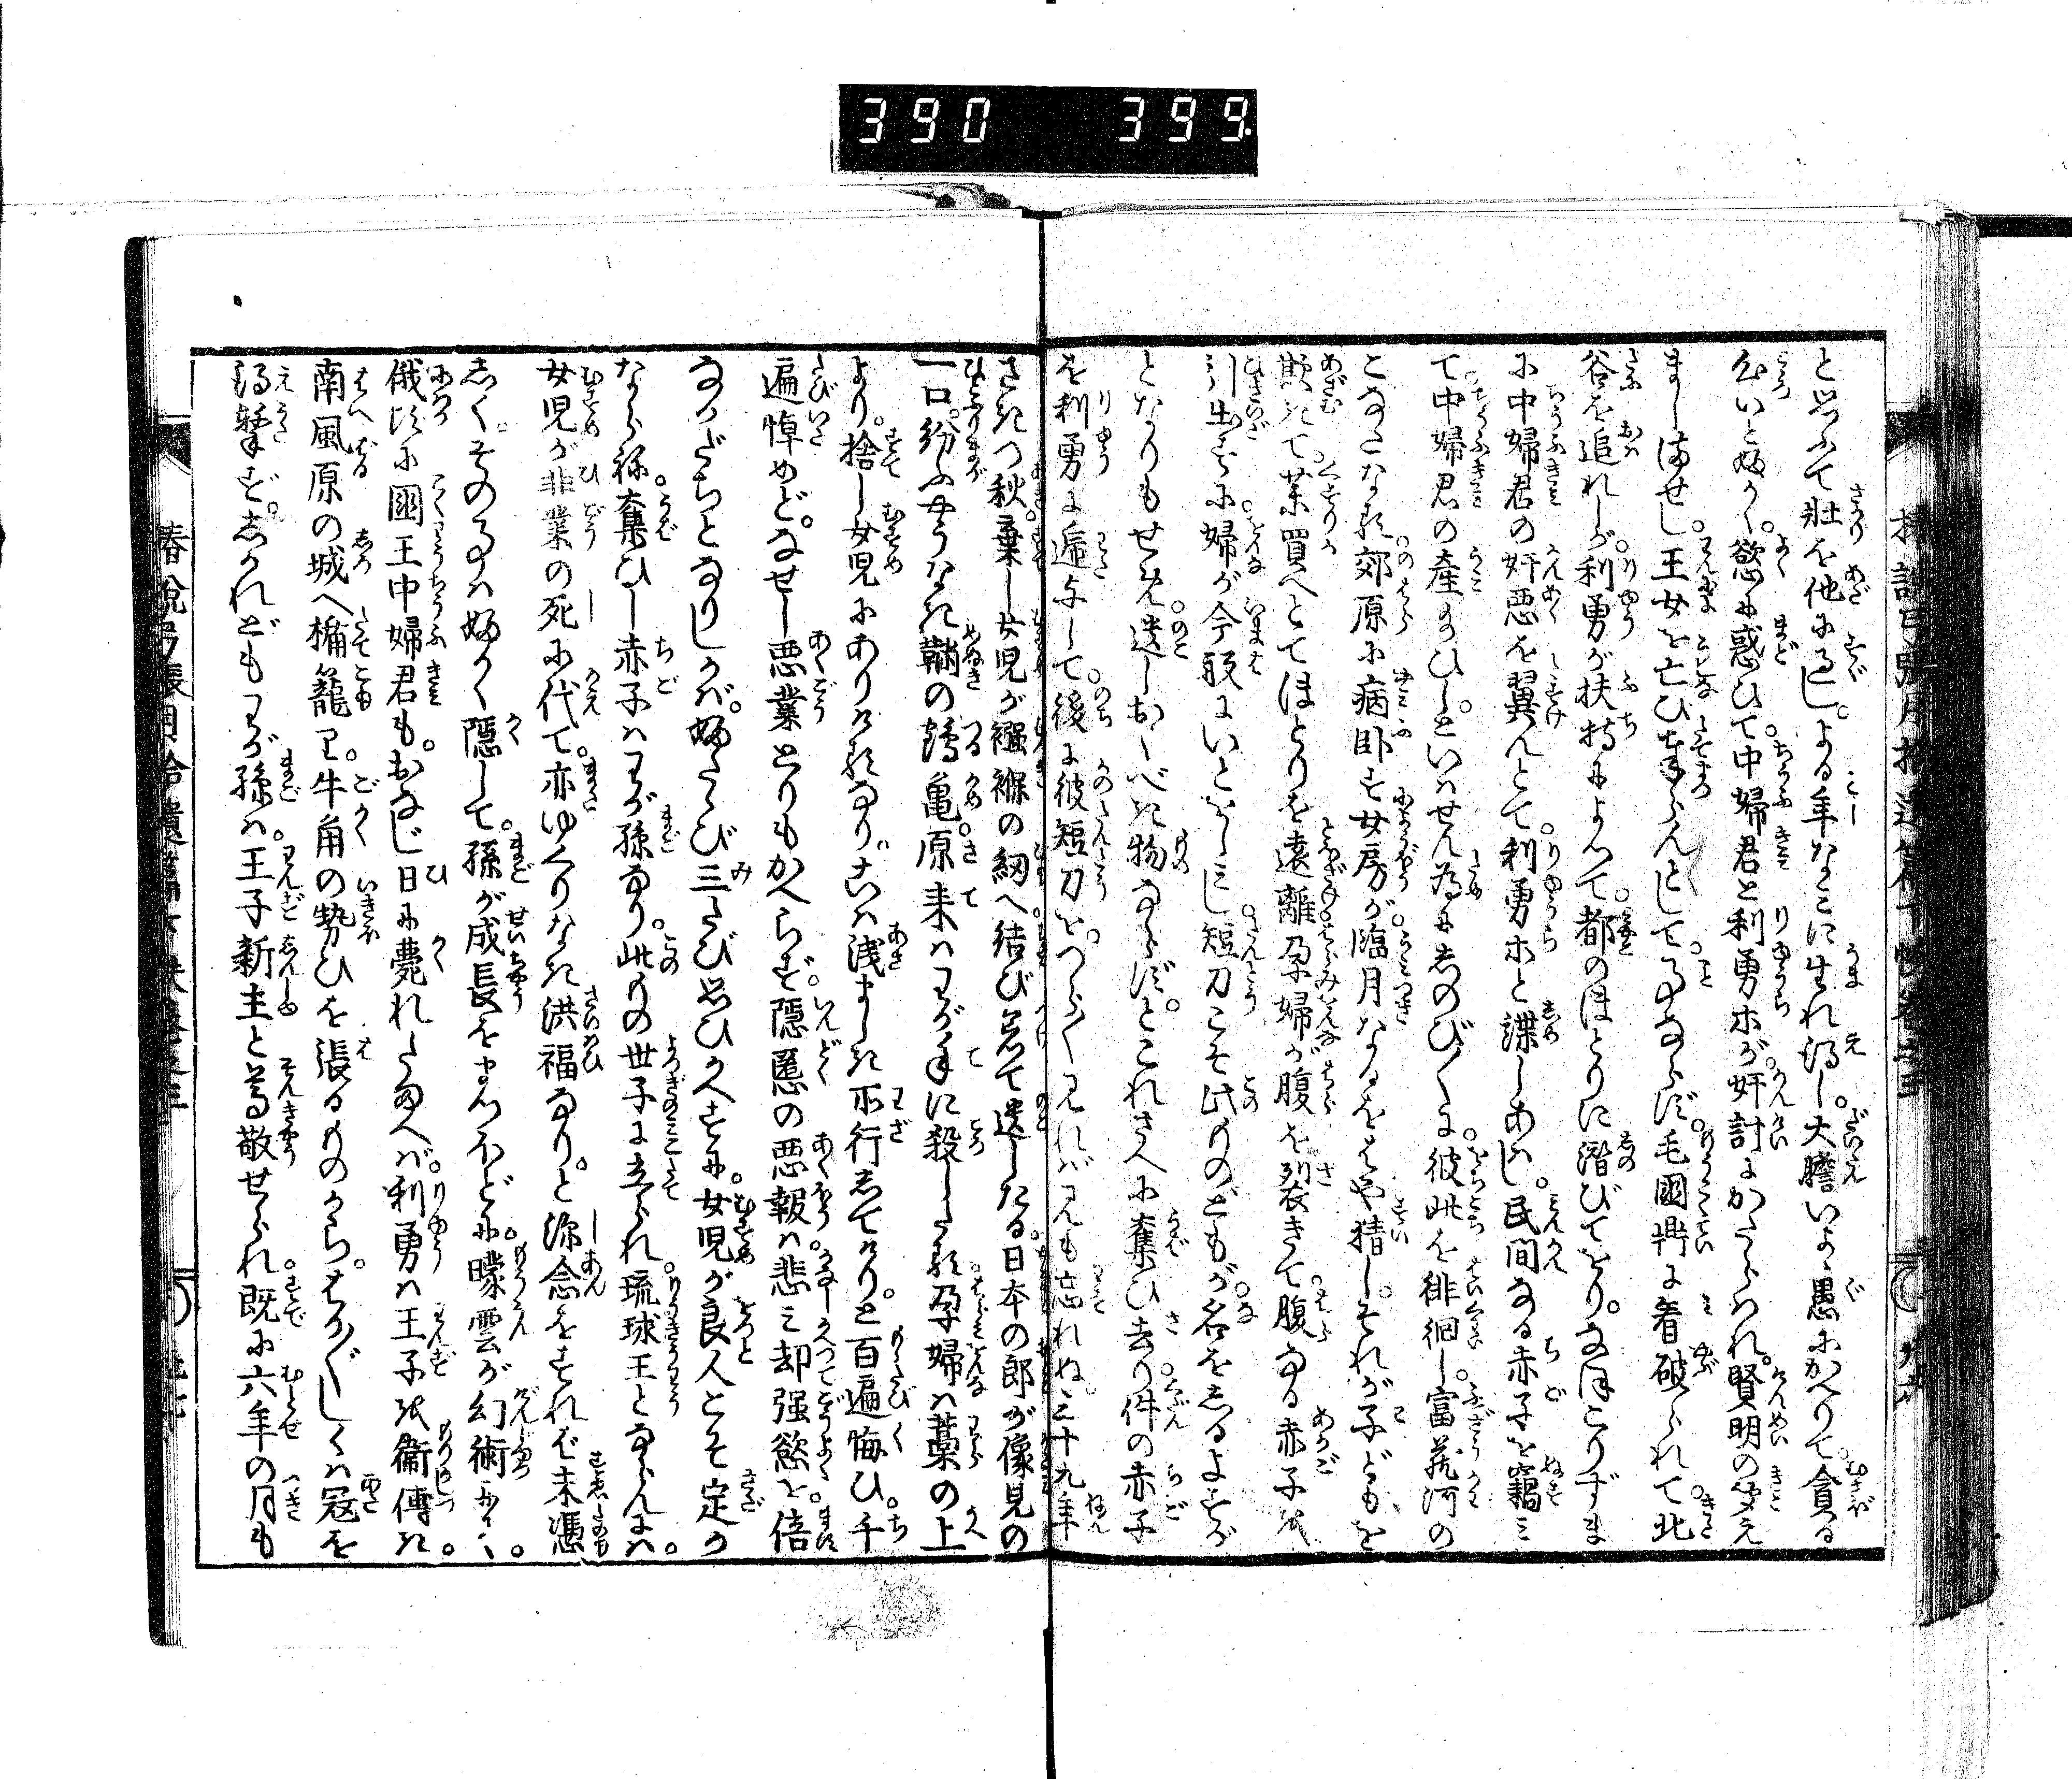 390 399
と思ふて壯を他にすぐし。よる年なみに生れ得し。大膽いよゝ愚にかへりて。貪る
心いとふかく。慾に惑ひて。中婦君と利勇ホが。奸計にかたらはれ。賢明の聞え
ましませし。王女を亡ひ奉らんとして。事ならず。毛國鼎に看破られて。北
谷を追れしが。利勇が扶持によつて。都のほとりに潜びてをり。なほこりずま
に中婦君の奸悪を翼んとて。利勇ホと諜しあはし。民間なる赤子を竊み
て。中婦君の産給ひし。といはせん為にしのび〳〵に。彼此を徘徊し。富蔵河の
こなたなる。郊原に病臥せし女房が。臨月なるをはや猜し。それが子どもを
欺きて。薬買へとてほとりを遠離。孕婦が腹を裂きて。腹なる赤子を
引出すに。婦が今般にいとをしみし。短刀こそ此ものどもが。名をしるよすが
となりもせめ。遺しおくべき物ならず。とこれさへに奪ひ去り。件の赤子
を利勇に逓与して。後に彼短刀を。つら〳〵見れば見も忘れぬ。三十九年
さきつ秋。棄し女児が襁褓の紐へ結び着て遺したる。日本の郎が像見の
一口。紛ふ方なき鞘の靏亀。原来はわが手に殺したる。孕婦は藁の上
より。捨し女児にありけるなり。こは浅ましき所行してけり。と百遍悔ひ。千
遍悼めど。なせし悪業とりもかへらず。隠慝の悪報は。悲み却強慾を。倍
なかだちとなりしかば。ふたゝび三たび思ひかへすに。女児が良人とそ定か
ならね。奪ひし赤子はわが孫なり。此もの世子に立られ。琉球王とならんには。
女児が非業の死に代て。亦ゆくりなき洪福なり。と深念をすれば末憑
しく。その事はふかく隠して。孫が成長をまつほどに。曚雲が幻術にて。
俄頃に國王中婦君も。おなじ日に薨れたまへば。利勇は王子を衛傅き。
南風原の城へ楯籠り。牛角の勢ひを張るものから。はか〴〵しくは冠を
得擡ず。しかれどもわが孫は。王子新主と尊敬せられ。既に六年の月も